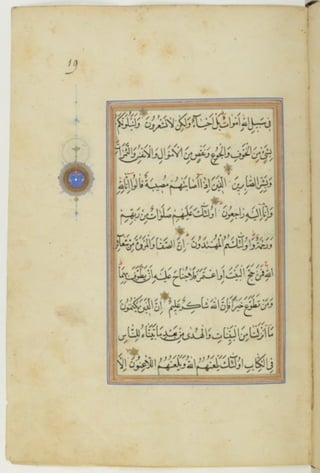 19
فِي سَبِيلِ اللهِ أَمْوَاتٌ بَلْ أَحْيَاءٌ وَلَكِنْ لَا تَشْعُرُونَ وَلَنَبْلُوَنَّكُمْ
بِشَيْءٍ مِنَ الْخَوْفِ وَالْجُوعِ وَنَقْصٍ مِنَ الْأَمْوَالِ وَالْأَنْفُسِ وَالثَّمَرَاتِ
وَبَشِّرِ الصَّابِرِينَ الَّذِينَ إِذَا أَصَابَتْهُمْ مُصِيبَةٌ قَالُوا إِنَّا لِلَّهِ
وَإِنَّا إِلَيْهِ رَاجِعُونَ أُولَئِكَ عَلَيْهِمْ صَلَوَاتٌ مِنْ رَبِّهِمْ
وَرَحْمَةٌ وَأُولَئِكَ هُمُ الْمُهْتَدُونَ إِنَّ الصَّفَا وَالْمَرْوَةَ مِنْ شَعَائِرِ
اللهِ فَمَنْ حَجَّ الْبَيْتَ أَوِ اعْتَمَرَ فَلَا جُنَاحَ عَلَيْهِ أَنْ يَطَّوَّفَ بِهِمَا
وَمَنْ تَطَوَّعَ خَيْرًا فَإِنَّ اللهَ شَاكِرٌ عَلِيمٌ إِنَّ الَّذِينَ يَكْتُمُونَ
مَا أَنْزَلْنَا مِنَ الْبَيِّنَاتِ وَالْهُدَى مِنْ بَعْدِ مَا بَيَّنَّاهُ لِلنَّاسِ
فِي الْكِتَابِ أُولَئِكَ يَلْعَنُهُمُ اللهُ وَيَلْعَنُهُمُ اللَّاعِنُونَ إِلَّا